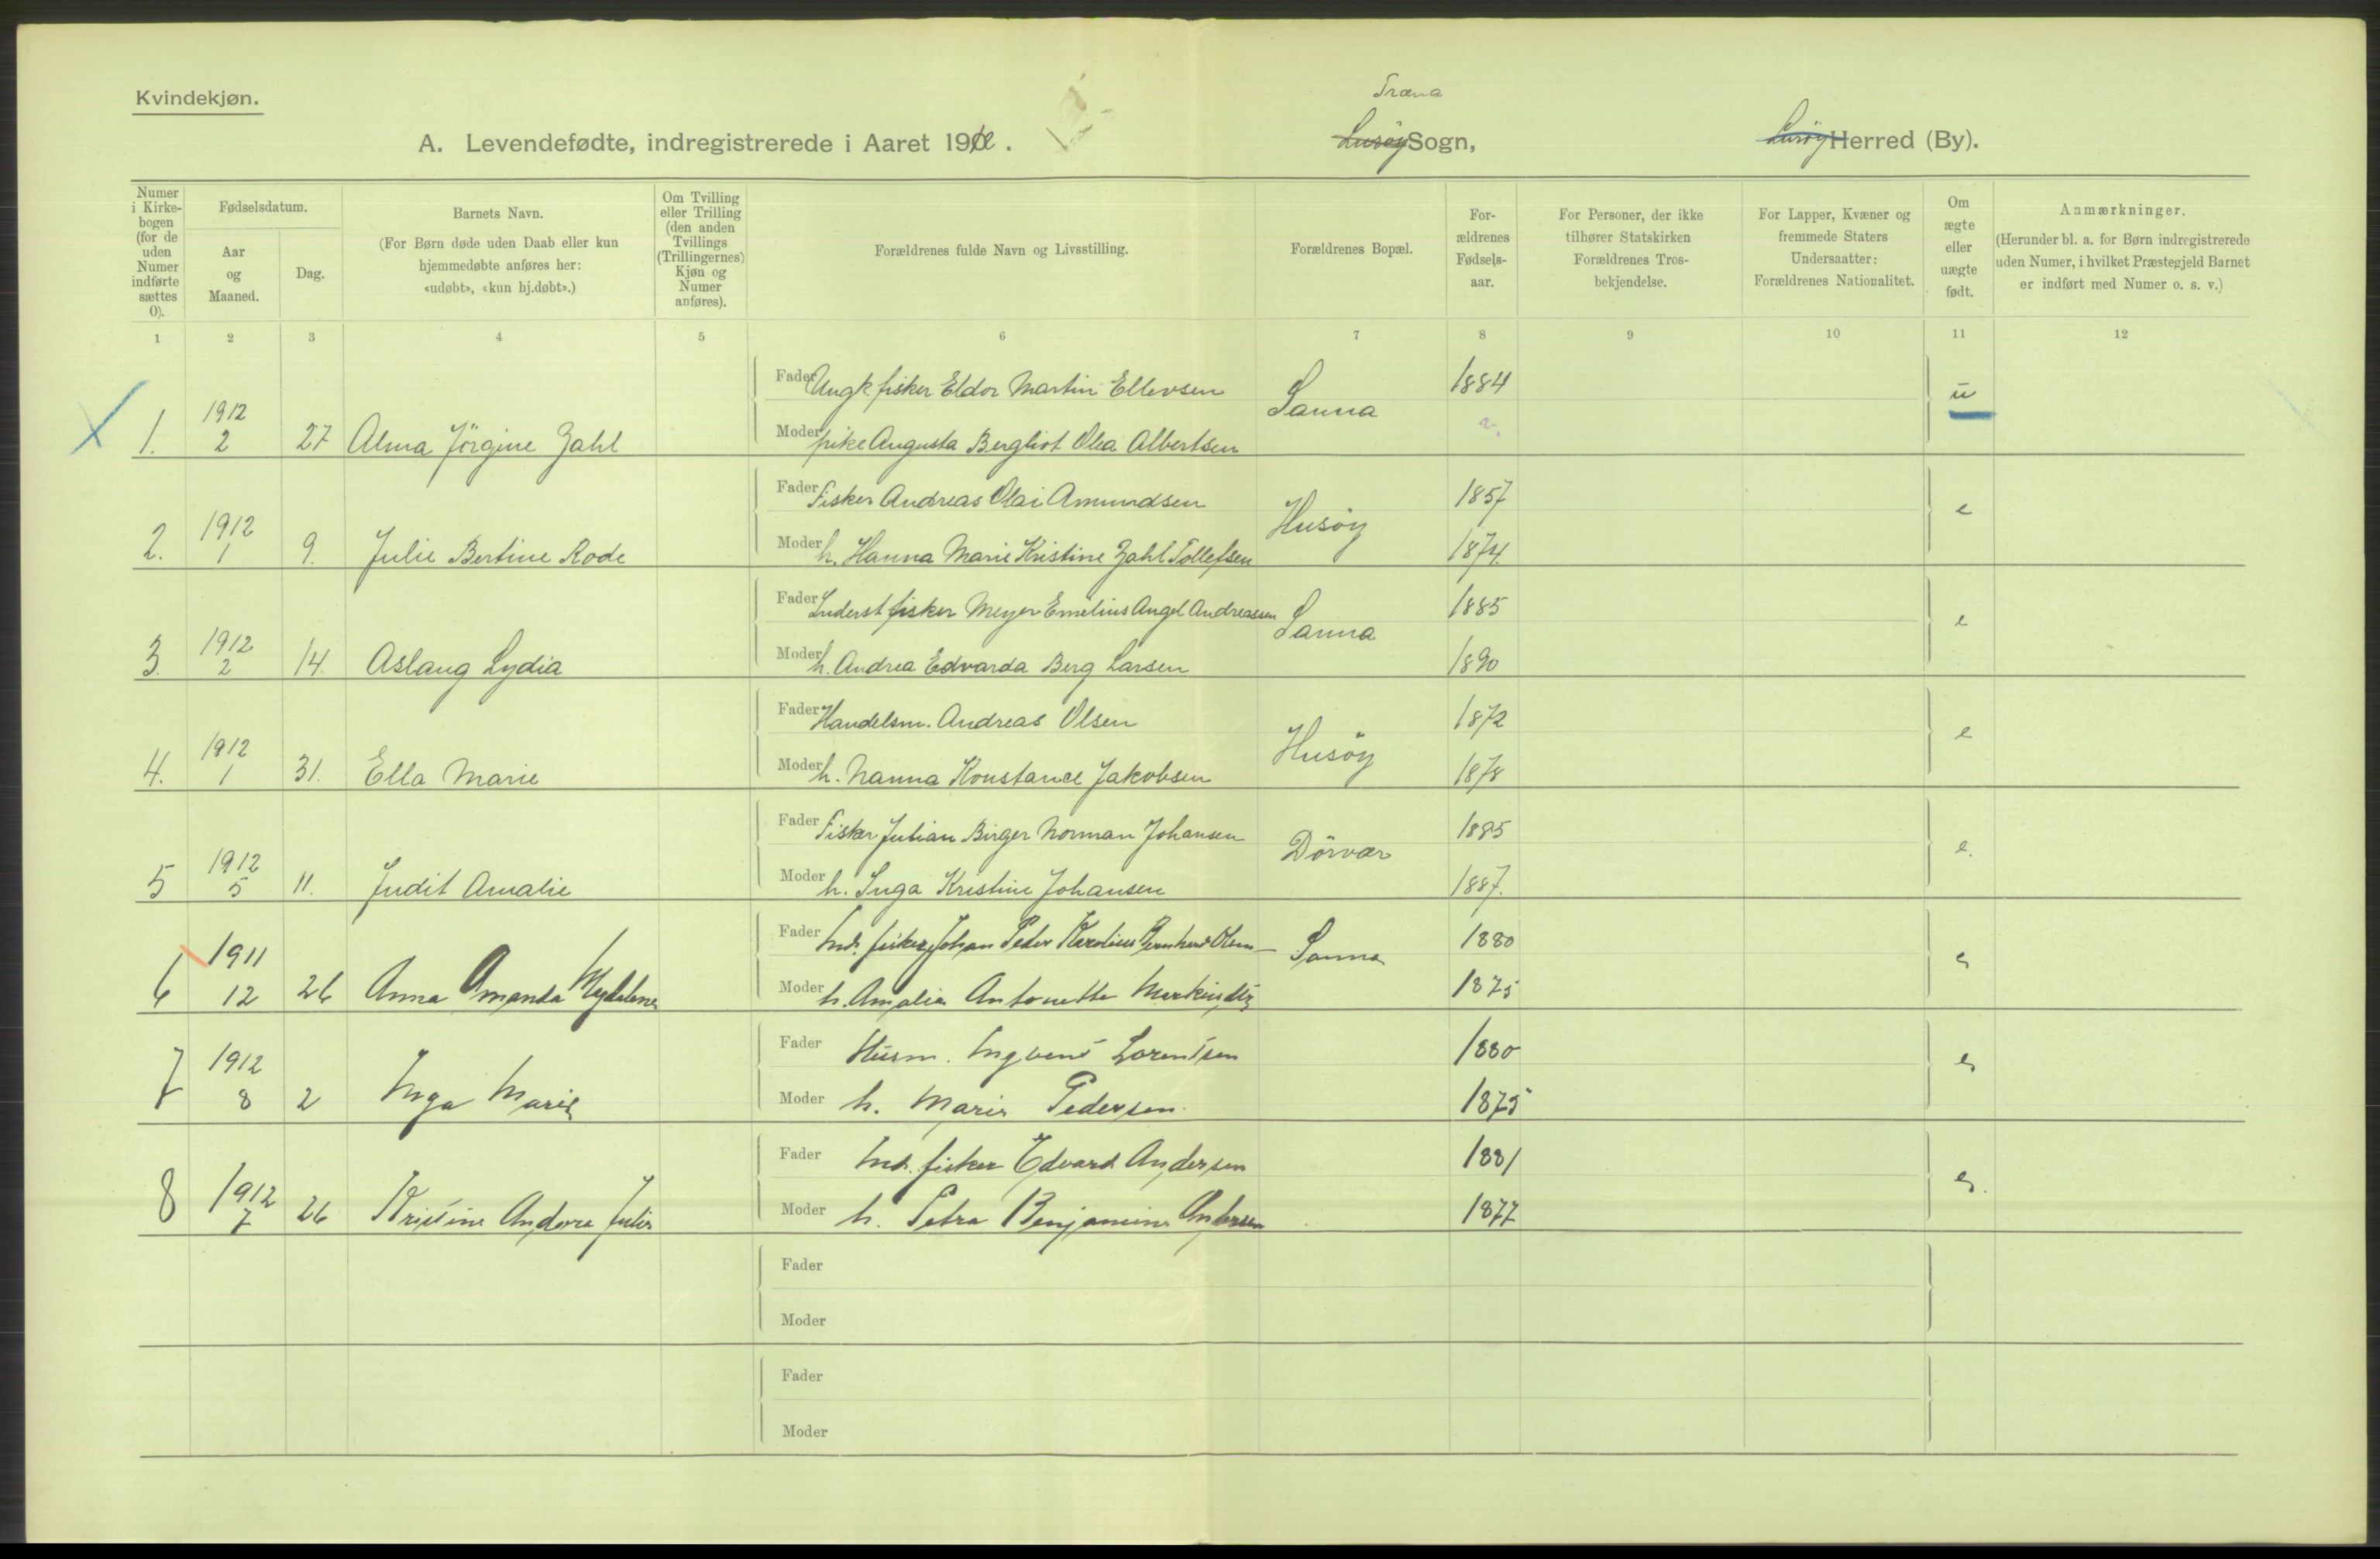 Kvindekjøn.
Træna
A. Levendefødte, indregistrerede i Aaret 1912. Lurøy Sogn, Lurøy Herred (By).
Numer i Kirkebogen (for de uden Numer indførte sættes 0).
Fødselsdatum.
Aar og Maaned.
Dag.
Barnets Navn.
(For Børn døde uden Daab eller kun hjemmedøbte anføres her: «udøbt», «kun hj.døbt».)
Om Tvilling eller Trilling (den anden Tvillings (Trillingernes) Kjøn og Numer anføres).
Forældrenes fulde Navn og Livsstilling.
Forældrenes Bopæl.
Forældrenes Fødselsaar.
For Personer, der ikke tilhører Statskirken Forældrenes Trosbekjendelse.
For Lapper, Kvæner og fremmede Staters Undersaatter: Forældrenes Nationalitet.
Om ægte eller uægte født.
Anmærkninger.
(Herunder bl. a. for Børn indregistrerede uden Numer, i hvilket Præstegjeld Barnet er indført med Numer o. s. v.)
1 2 3 4 5 6 7 8 9 10 11 12
Fader Ungk. fisker Eldor Martin Ellevsen Sanna 1884 u
1. 1912 2 27 Alma Jörgine Zahl
Moder pike Augusta Bergliot Olea Albertsen ?.
Fader Fisker Andreas Olai Amundsen Husöy 1857 e
2. 1912 1 9. Julie Bertine Rode
Moder h. Hanna Marie Kristine Zahl Tollefsen 1874.
Fader Inderst fisker Meyer Emelius Angel Andreassen Sanna 1885 e
3. 1912 2 14. Aslaug Lydia
Moder h. Andrea Edvarda Berg Larsen 1890
Fader Handelsm. Andreas Olsen Husöy 1872 e
4. 1912 1 31. Ella Marie
Moder h. Nanna Konstance Jakobsen 1878
Fader Fisker Julian Birger Norman Johansen Dörvær 1885 e.
5 1912 5 11. Judit Amalie
Moder h. Inga Kristine Johansen 1887.
Fader Ind. fisker Johan Peder Karolius Bernhard Olsen Sanna 1880 e
6 1911 12 26 Anna Amanda Magdalena
Moder h. Amalie Antonette 1875
Fader Husm. Ingvart Lorentsen 1880 e
7 1912 8 2 Inga Marie
Moder h. Marie Pedersen 1875
Fader Ind. fisker Edvard Andersen 1881 e.
8 1912 7 26 Kristine Andora Julie
Moder h. Petra Benjamine Andersen 1877
Fader
Moder
Fader
Moder